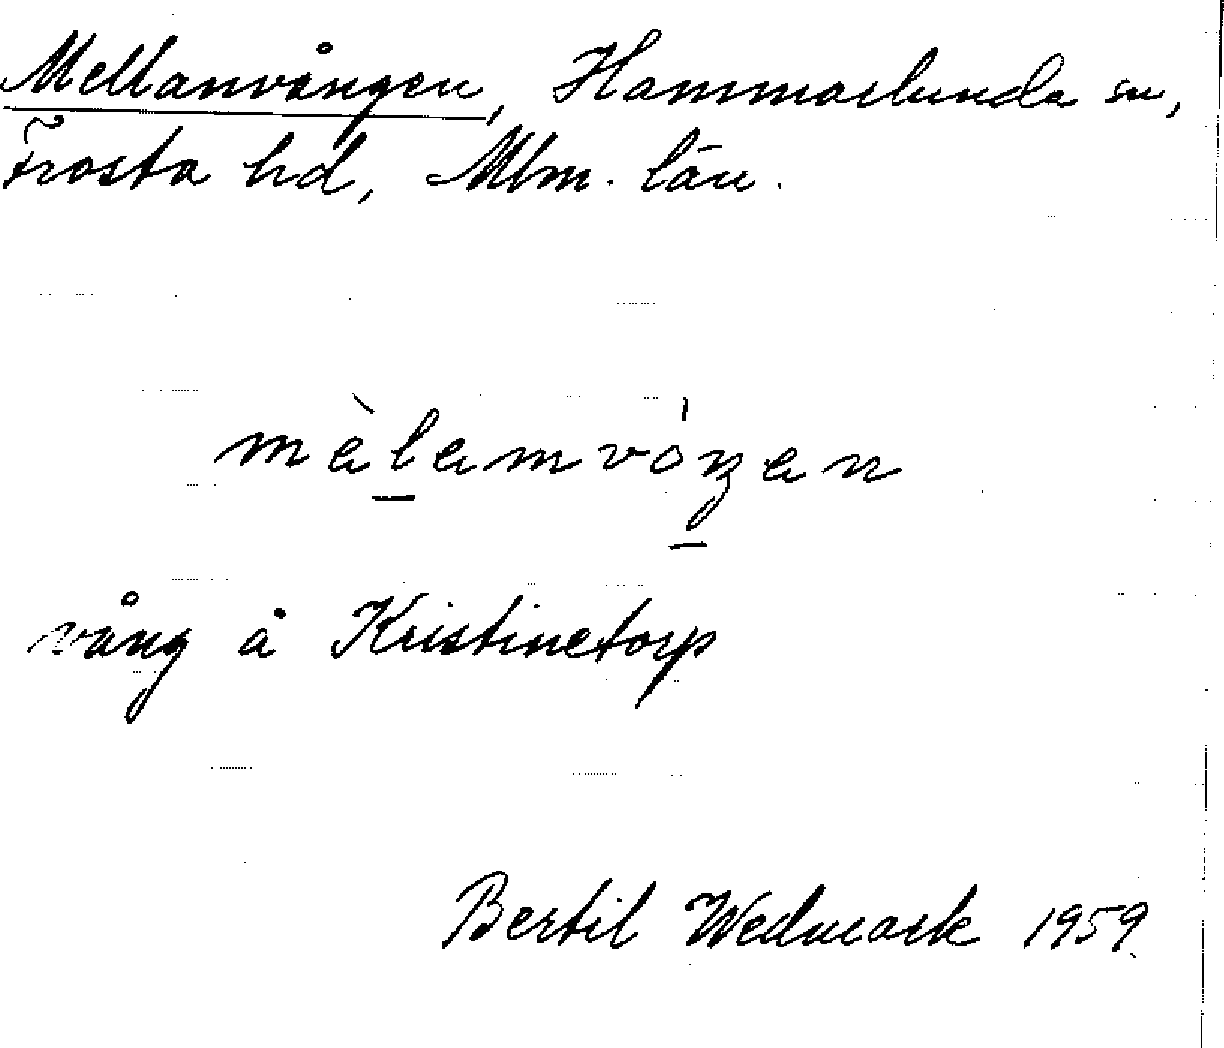 Mellanvången, Hammarlunda sn,
Frosta hd, Mlm. län.
mèlamvóŋen
vång å Kristinetorp
Bertil Wedmark 1959.